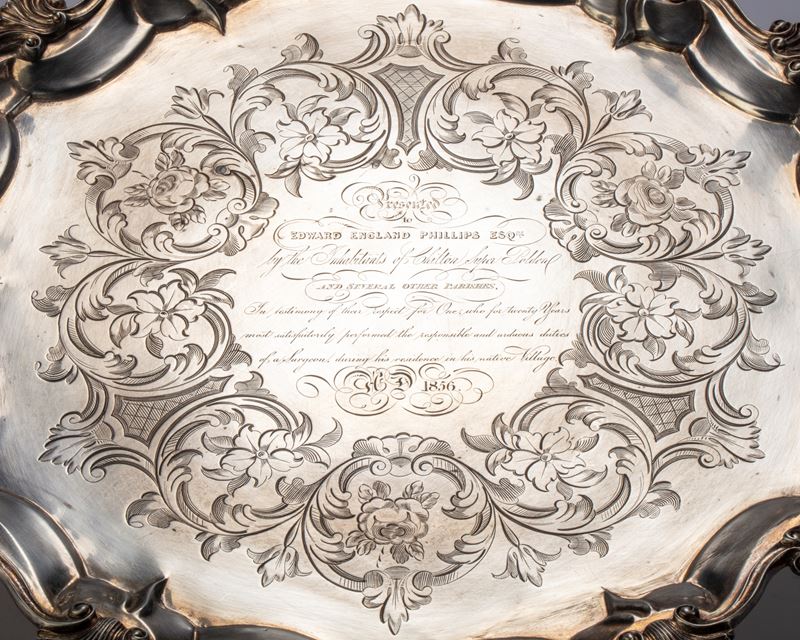 Presented
to
EDWARD ENGLAND PHILLIPS ESQ.
by the Inhabitants of Chilton Super Poldon
AND SEVERAL OTHER PARISHES,
In testimony of their respect for One, who for twenty Years
most satisfactorily performed the responsible and arduous duties
of a Surgeon, during his residence in his native Village.
A.D. 1856.